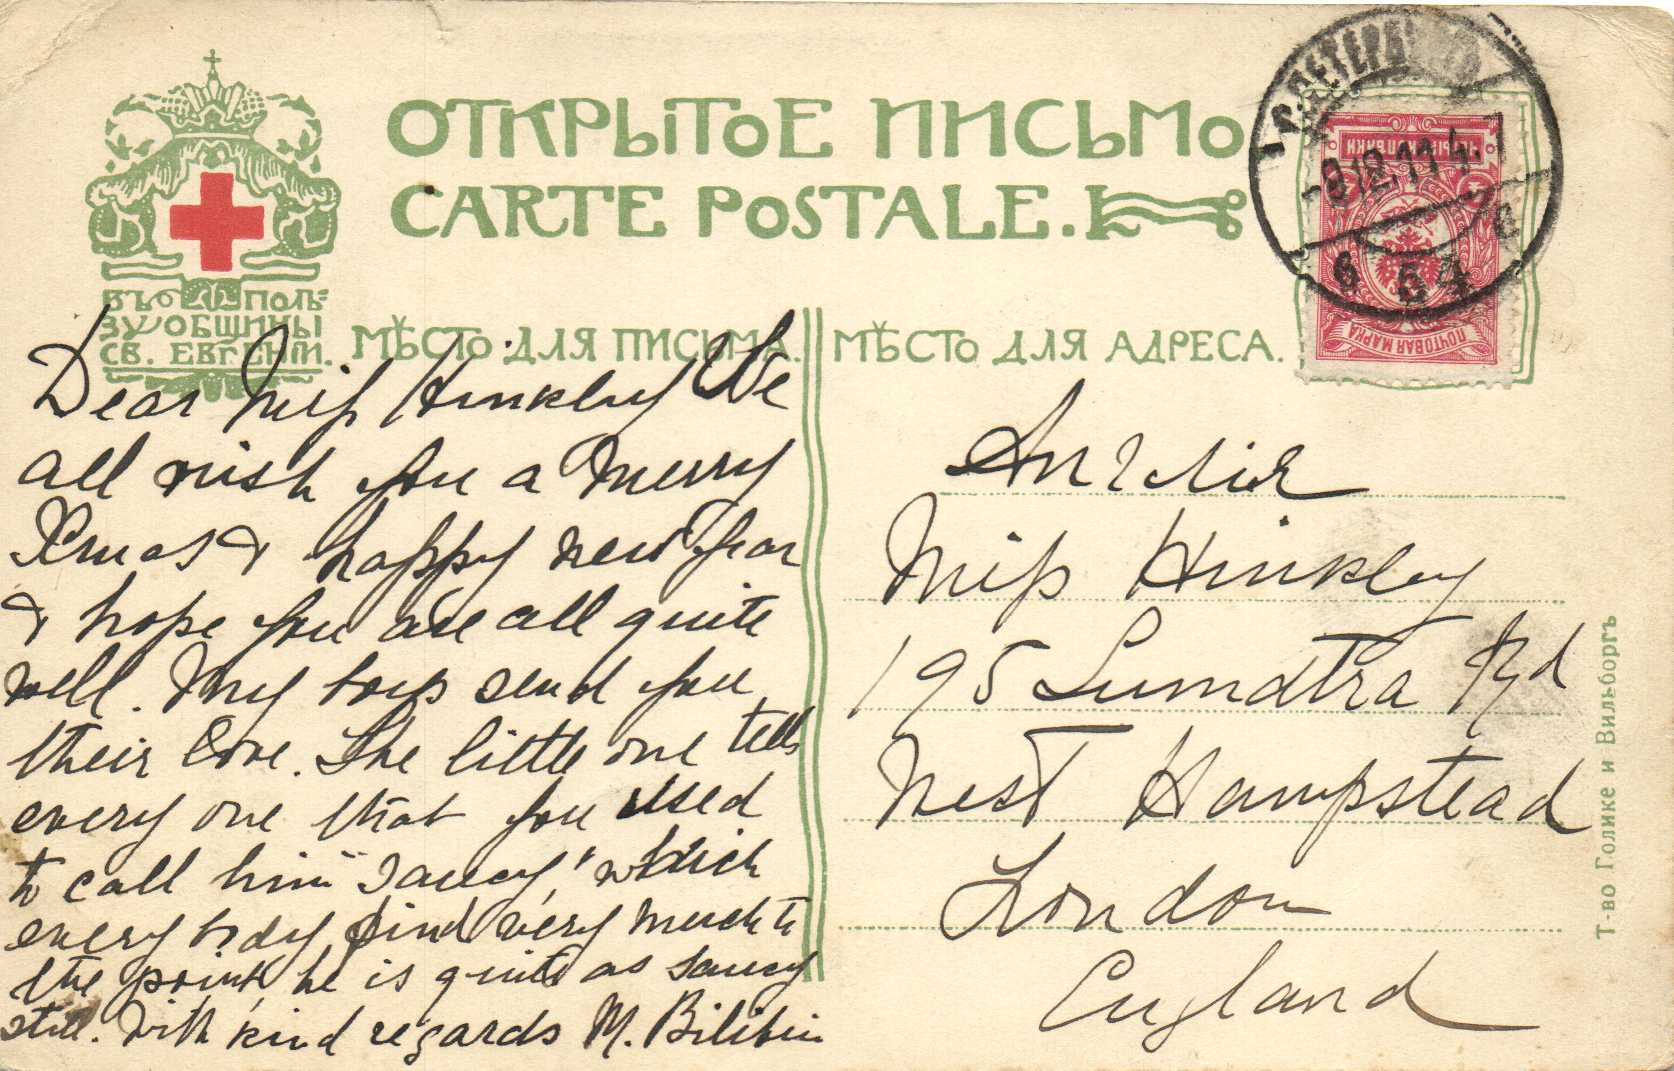 ОТКРЫТОЕ ПИСЬМО
CARTE POSTALE.
ВЪ ПОЛЬ-
ЗУ ОБЩИНЫ
СВ. ЕВГЕНІИ.
МѢСТО ДЛЯ ПИСЬМА.
МѢСТО ДЛЯ АДРЕСА.
Dear Miss Hinkley We
all wish you a Merry
Xmas & happy new year
& hope you are all quite
well. My boys send you
their love. The little one tells
every one that you used
to call him "Saucy," which
every body find very much to
the point, he is quite as saucy
still. With kind regards M. Bilibin
Англія
Miss Hinkley
195 Sumatra Rd
West Hampstead
London
England
С.ПЕТЕРБУРГЪ
9.12.11
ПОЧТОВАЯ МАРКА
Т-во Голике и Вильборгъ